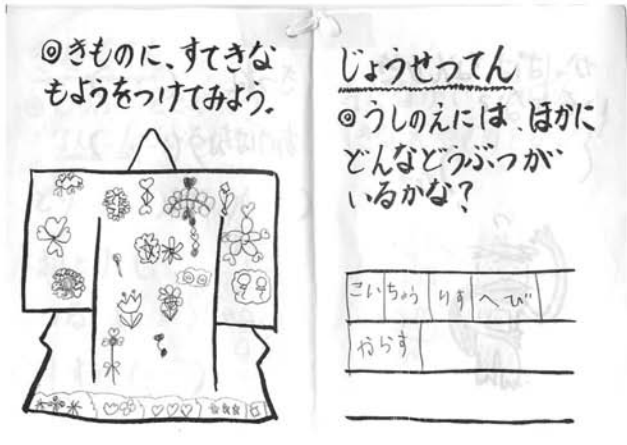 ◎きものに、すてきな
もようをつけてみよう。
じょうせつてん
◎うしのえには、ほかに
どんなどうぶつが
いるかな?
こい ちょう りす へび
からす